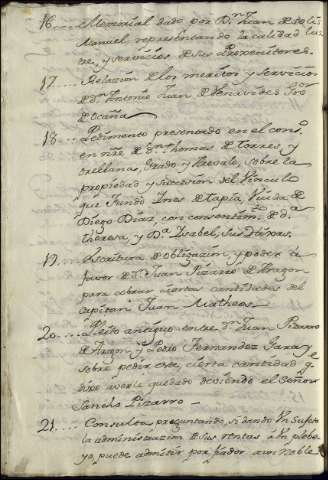 16. Memorial dado por Dn Juan de
Manuel representando la calidad
y servicios de sus Projenitores.
17. Relazion de los meritos y servicios
de dn Antonio Juan de Benavides
Ocaña
18. Pedimento presentado en el cons.
en nre de dn Thomas de Torres y
orellana, Grado y Arevalo, sobre la
propiedad y sucesion del Vinculo
que fundó Ines de Tapia Viuda de
Diego Diaz, con consentim. de da
theresa y Da Isabel, sus
19. Escritura de obligazion y poder á
favor de Dn Juan Pizarro de Aragon
para cobrar ciertas cantidades del
capitan Juan Matheos
20. Pleito antiguo entre dn Juan Pizarro
de Aragon y Pedro Fernandez Garay
sobre pedir este cierta cantidad q
dize averle quedado deviendo el Señor
Sancho Pizarro
21. Consulta preguntando, si dando Un Sujeto
la administrazion de sus rentas á Un plebe
yo, puede admitir por fiador a un noble